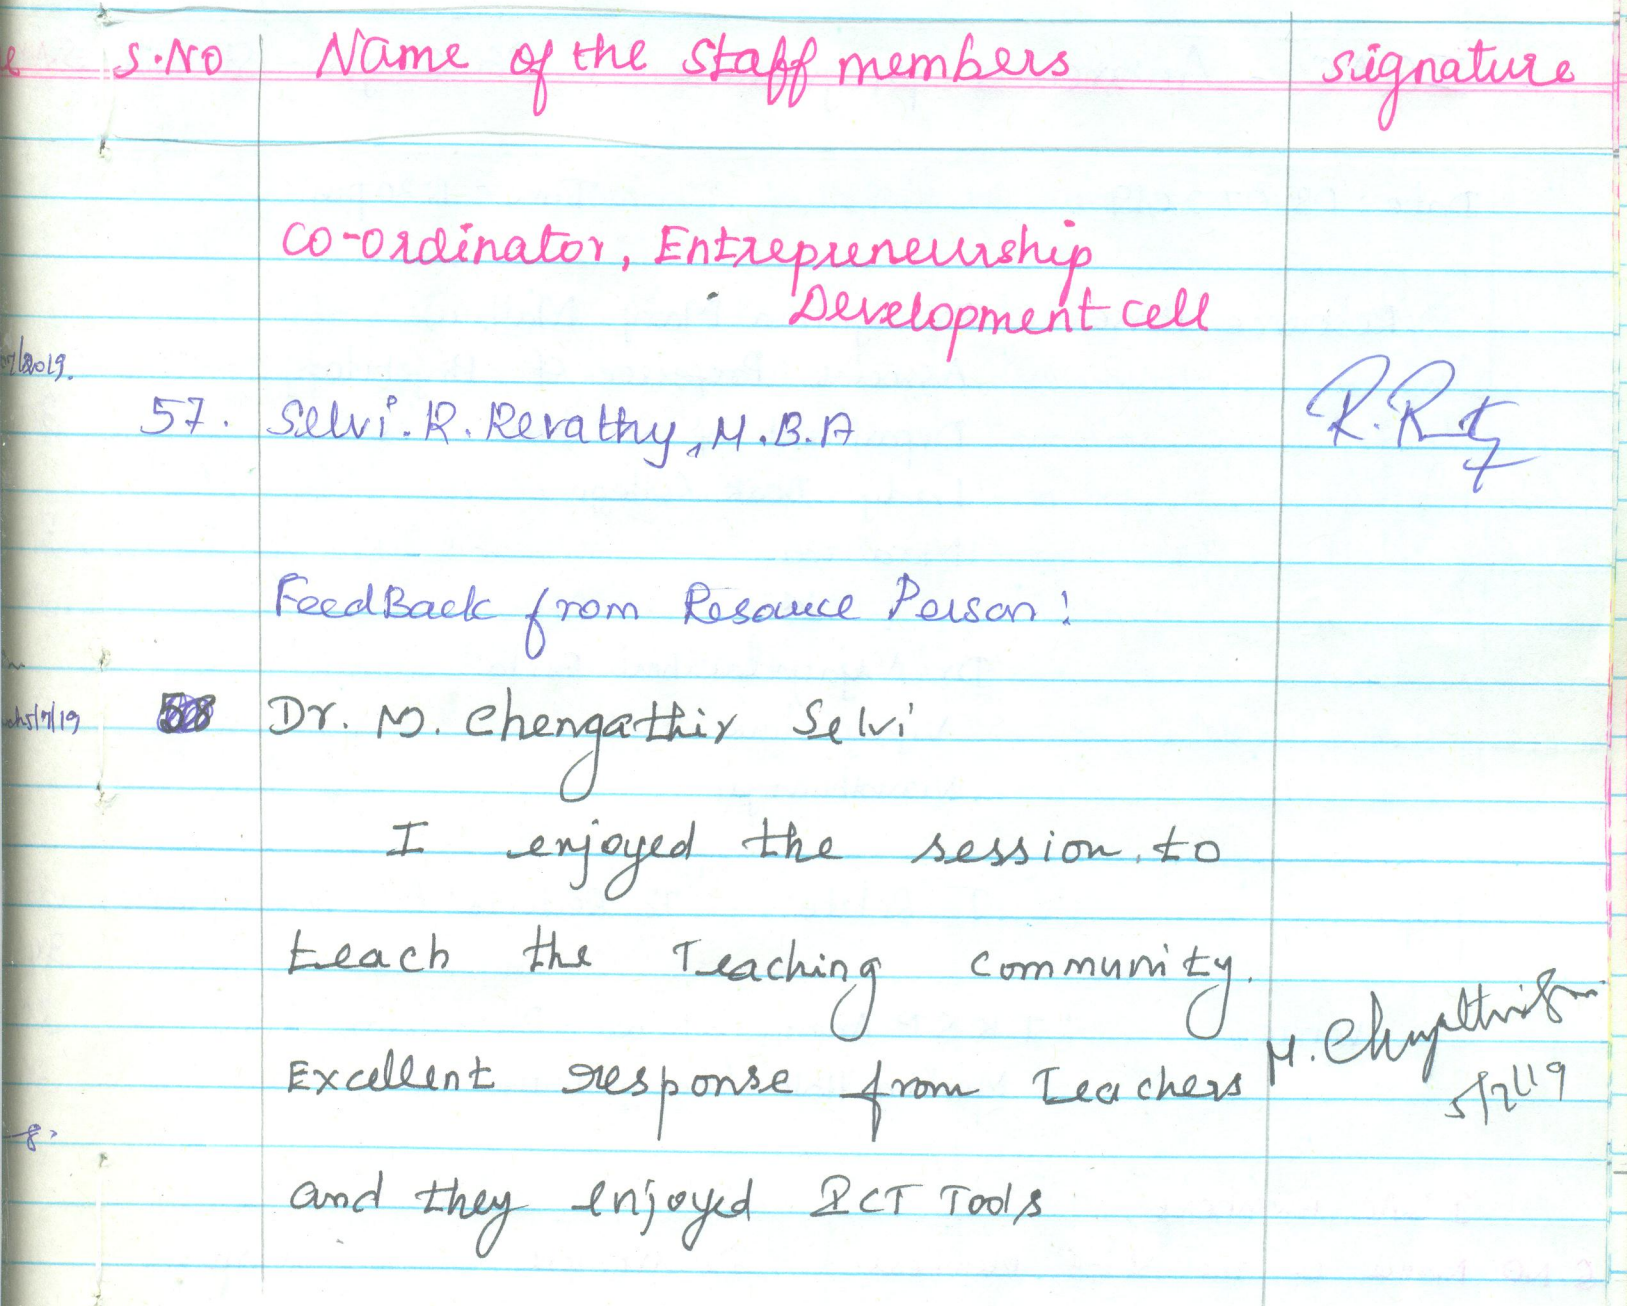 S.NO Name of the staff members signature
Co-ordinator, Entrepreneurship
Development cell
/2019.
57. Selvi. R. Revathy, M.B.A R.R
FeedBack from Resource Person:
58 Dr. M. Chengathir Selvi
/7/19
I enjoyed the session to
teach the Teaching community.
Excellent response from Teachers M. Chengathir
5/7/19
and they enjoyed ICT Tools